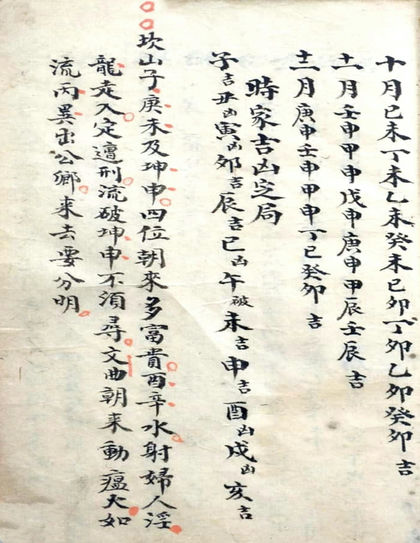 十月己未丁未乙未癸未己卯丁卯乙卯癸卯吉
十一月壬申甲申戊申庚申甲辰壬辰吉
十二月庚申壬申甲申丁巳癸卯吉
時家吉凶芝局
子吉丑凶寅凶卯吉辰吉巳凶午破未吉申吉酉凶戌凶亥吉
坎山子庚未及坤申四位朝來多富貴酉辛水射婦人淫
龍走入定遭刑流破坤申不須尋文曲朝來動瘟火如
流丙異出公鄉來去要分明